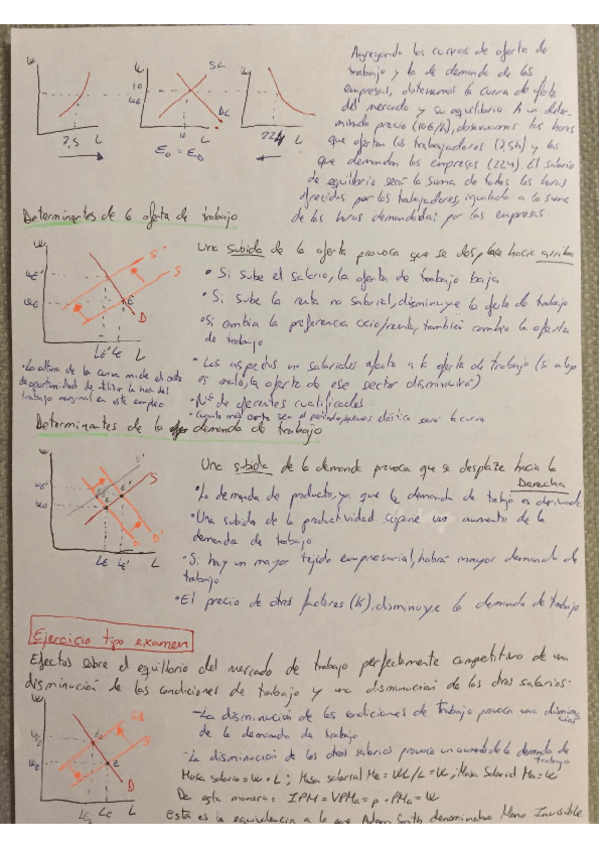 Agregando las curvas de oferta de
trabajo y la de demanda de las
empresas, obtenemos la curva de oferta
del mercado y su equilibrio. A un deter-
minado precio (10€/h), observamos las horas
que ofertan los trabajadores (7,5h) y las
que demandan las empresas (22h). El salario
de equilibrio será la suma de todas las horas
ofrecidas por los trabajadores, igualado a la suma
de las horas demandadas por las empresas.
W W W
10
WE
SL
DL
7,5 L 16 L 22h L
E0 = ED
Determinantes de la oferta de trabajo
Una subida de la oferta provoca que se desplace hacia arriba
• Si sube el salario, la oferta de trabajo baja
• Si sube la renta no salarial, disminuye la oferta de trabajo
• Si cambia la preferencia ocio/renta, también cambia la oferta
de trabajo
• Los aspectos no salariales afecta a la oferta de trabajo (si algo
es malo, la oferta de ese sector disminuirá)
• Nº de oferentes cualificados
• Cuanto más corto sea el periodo, menos elástica será la curva
W
WE'
WE
S'
S
E
D
LE' LE L
• La altura de la curva mide el coste
de oportunidad de utilizar la hora del
trabajo marginal en este empleo
Determinantes de la demanda de trabajo
Una subida de la demanda provoca que se desplaze hacia la
Derecha
• La demanda de producto, ya que la demanda de trabajo es derivada
• Una subida de la productividad supone un aumento de la
demanda de trabajo
• Si hay un mayor tejido empresarial, habrá mayor demanda de
trabajo
• El precio de otros factores (K), disminuye la demanda de trabajo
W
S'
S
D D'
LE LE' L
Ejercicio tipo examen
Efectos sobre el equilibrio del mercado de trabajo perfectamente competitivo de una
disminución de las condiciones de trabajo y una disminución de los otros salarios:
- La disminución de las condiciones de trabajo provoca una disminu-
ción
de la demanda de trabajo
- La disminución de los otros salarios provoca un aumento de la demanda de
trabajo
Masa salario = W · L ; Masa salarial Me = WL/L = W ; Masa Salarial Ma = W
De esta manera: IPM = VPMa = p · PMa = W
Esta es la equivalencia a lo que Adam Smith denominaba Mano Invisible
W
WE
S
E
D
LE L